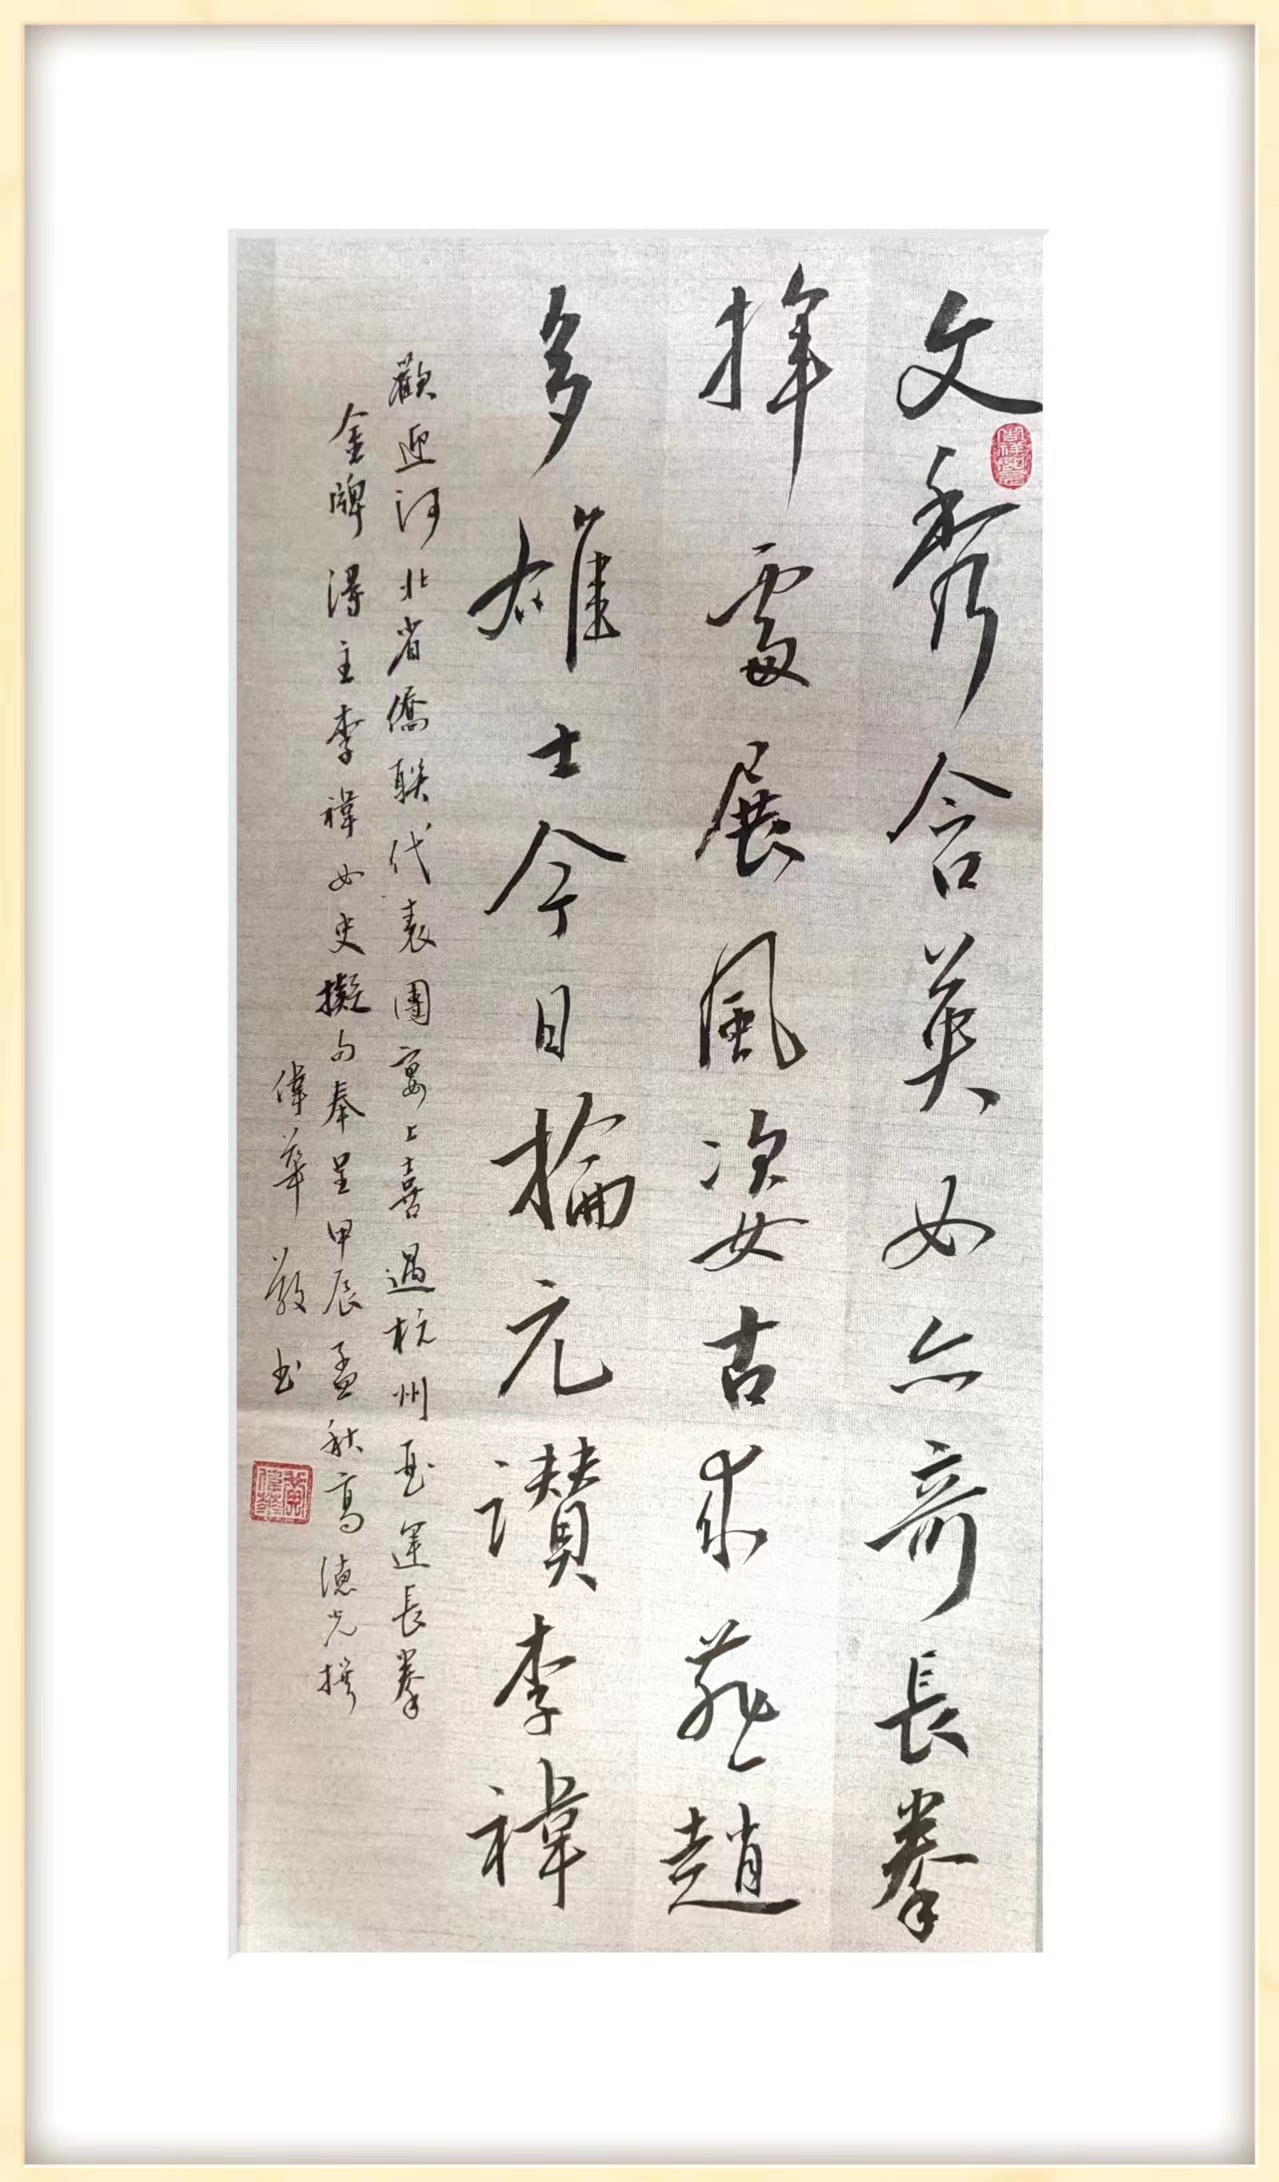 文秀含英女亦奇長拳
揮處展風姿古來燕趙
多雄士今日掄元讚李禕
歡迎河北省僑聯代表團宴上喜遇杭州亞運長拳
金牌得主李禕女史擬句奉呈甲辰孟秋高德光撰
偉華敬書
吉祥如意
黃偉華